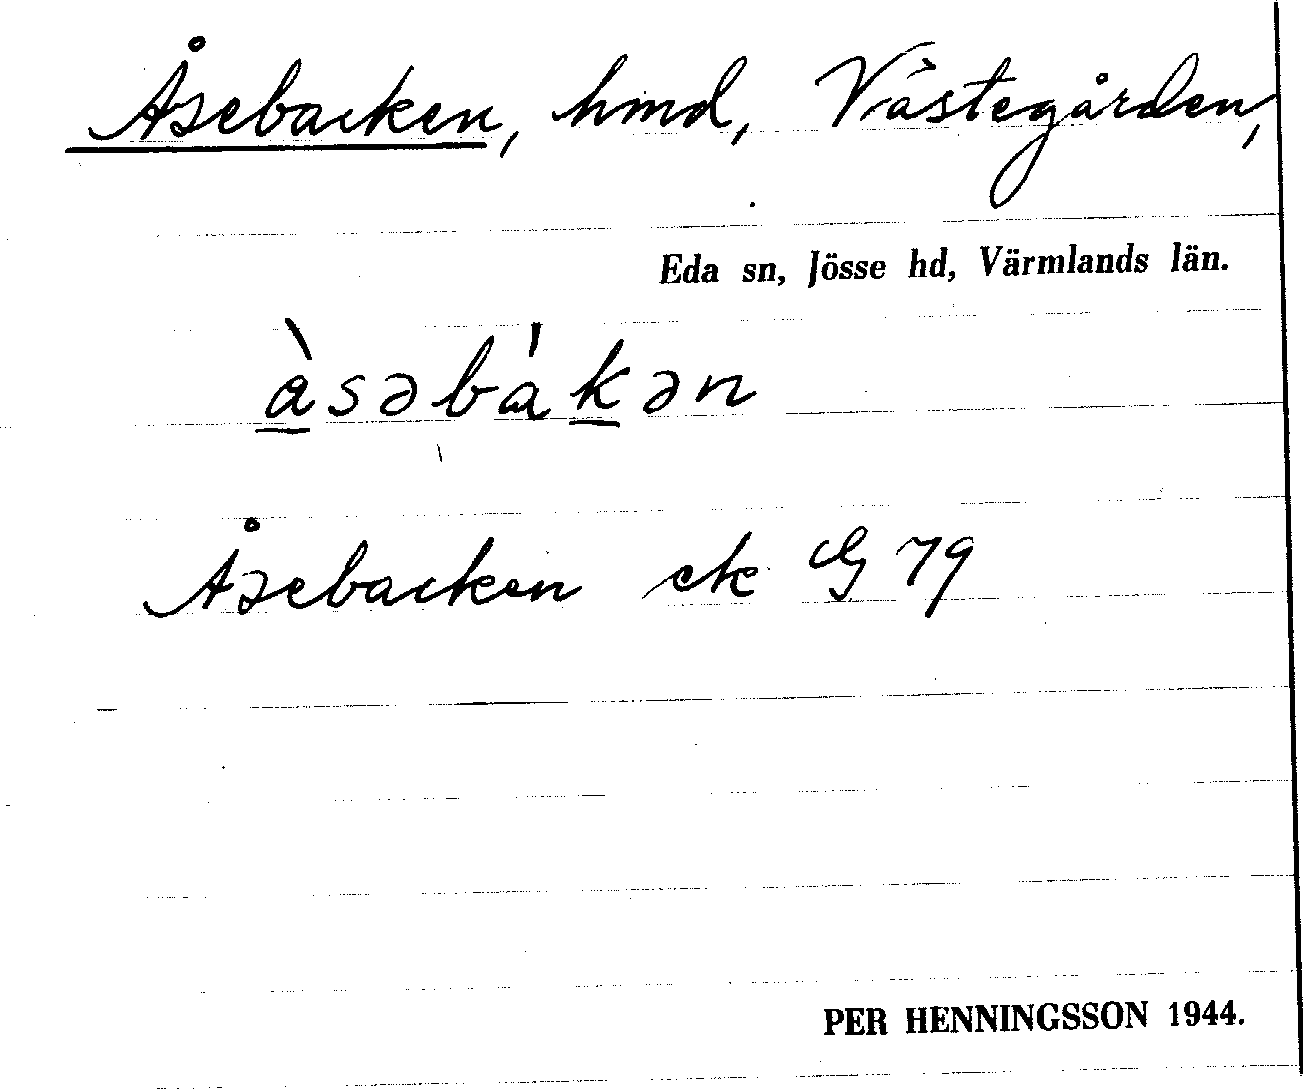 Åsebacken, hmd, Västegården,
Eda sn, Jösse hd, Värmlands län.
à̲səbákə̲n
Åsebacken ek G 79
PER HENNINGSSON 1944.